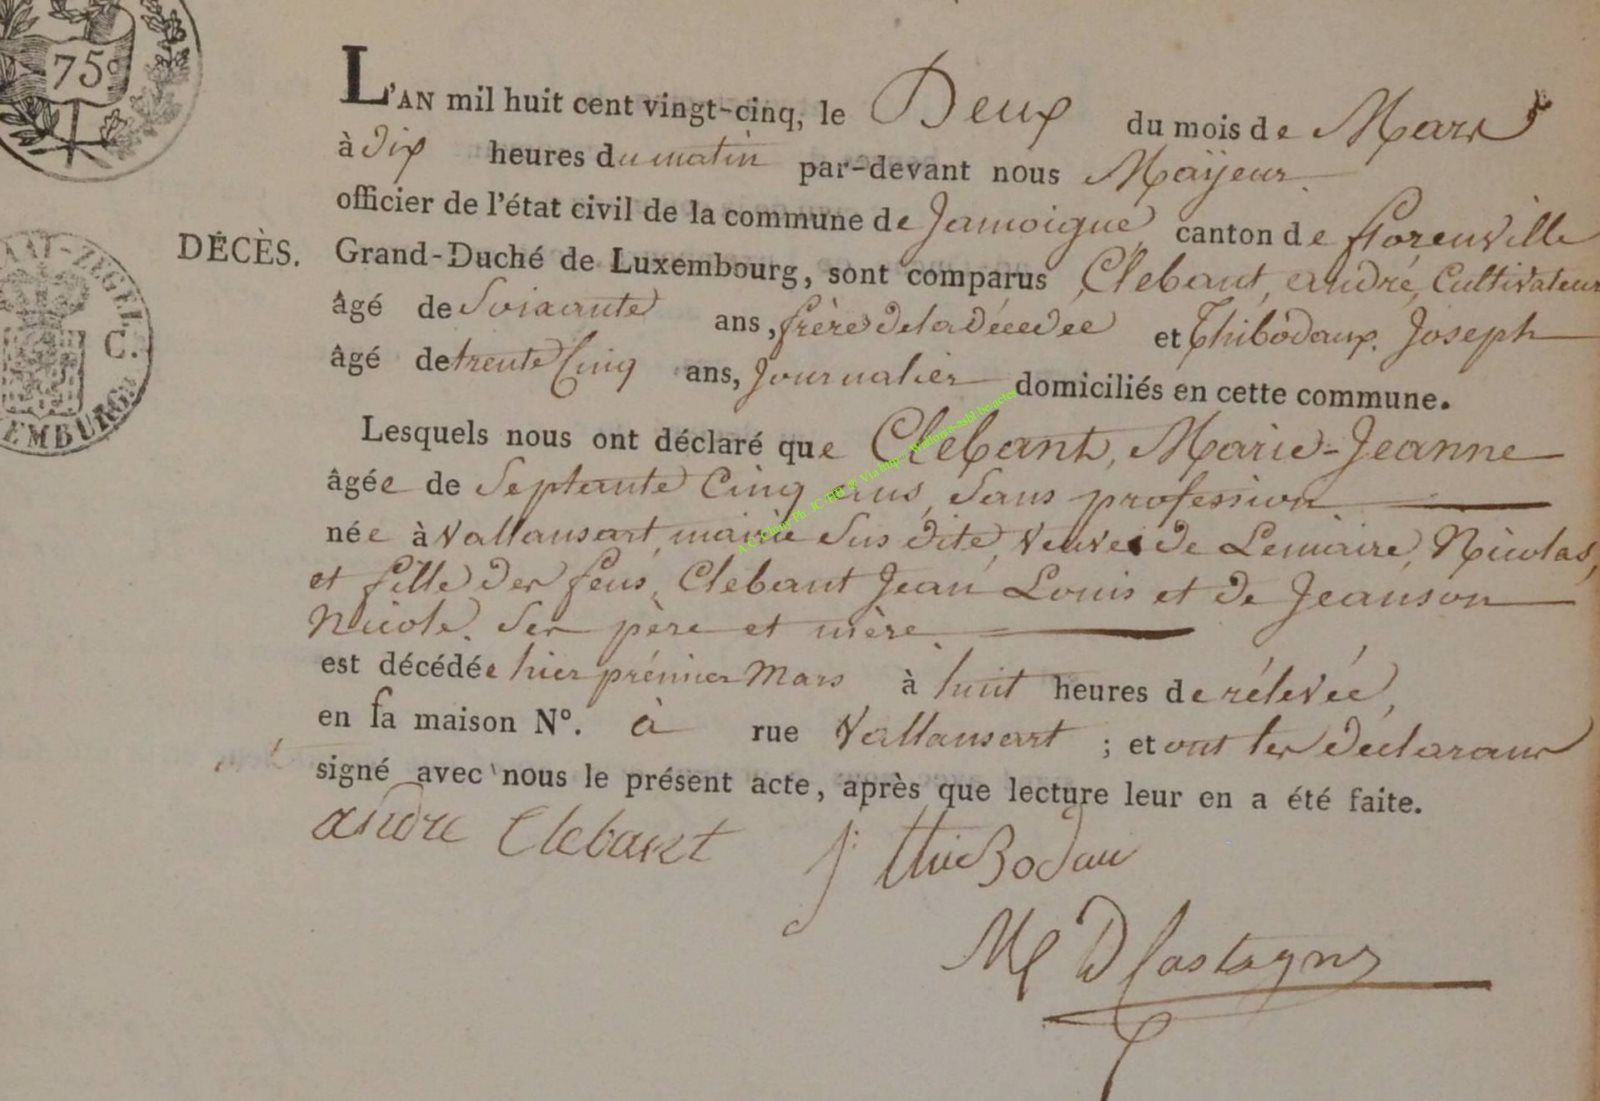 75c
L'AN mil huit cent vingt-cinq, le Deux du mois de Mars
à dix heures du matin par-devant nous Maÿeur
officier de l'état civil de la commune de Jamoigne canton de florenville
DÉCÈS.
Grand-Duché de Luxembourg, sont comparus Clebant, andré, Cultivateur
âgé de Soixante ans, frère de la décedée et Thibodaux. Joseph
âgé de trente Cinq ans, Journalier domiciliés en cette commune.
C.
Lesquels nous ont déclaré que Clebant, Marie-Jeanne
âgée de Septante Cinq ans, Sans profession
née à Vallansart, mairie Sus dite, veuve de Lemaire, Nicolas,
et fille des feus, Clebant Jean Louis et de Jeanson
Nicole. Ses père et mère.
est décédée hier prémier Mars à huit heures de rélevée,
en sa maison N°. à rue Vallansart ; et ont les declarans
signé avec nous le présent acte, après que lecture leur en a été faite.
andre Clebant J thieBodau